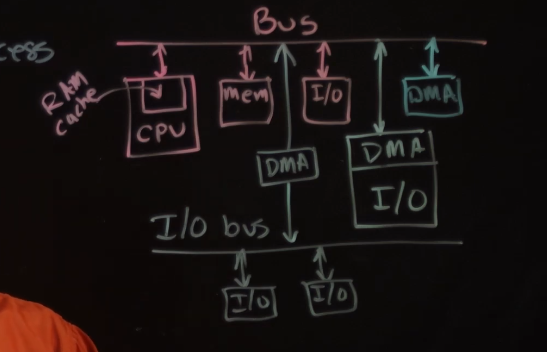 Bus
cess
RAM
cache
CPU
mem
I/O
DMA
DMA
DMA
I/O
I/O bus
I/O
I/O